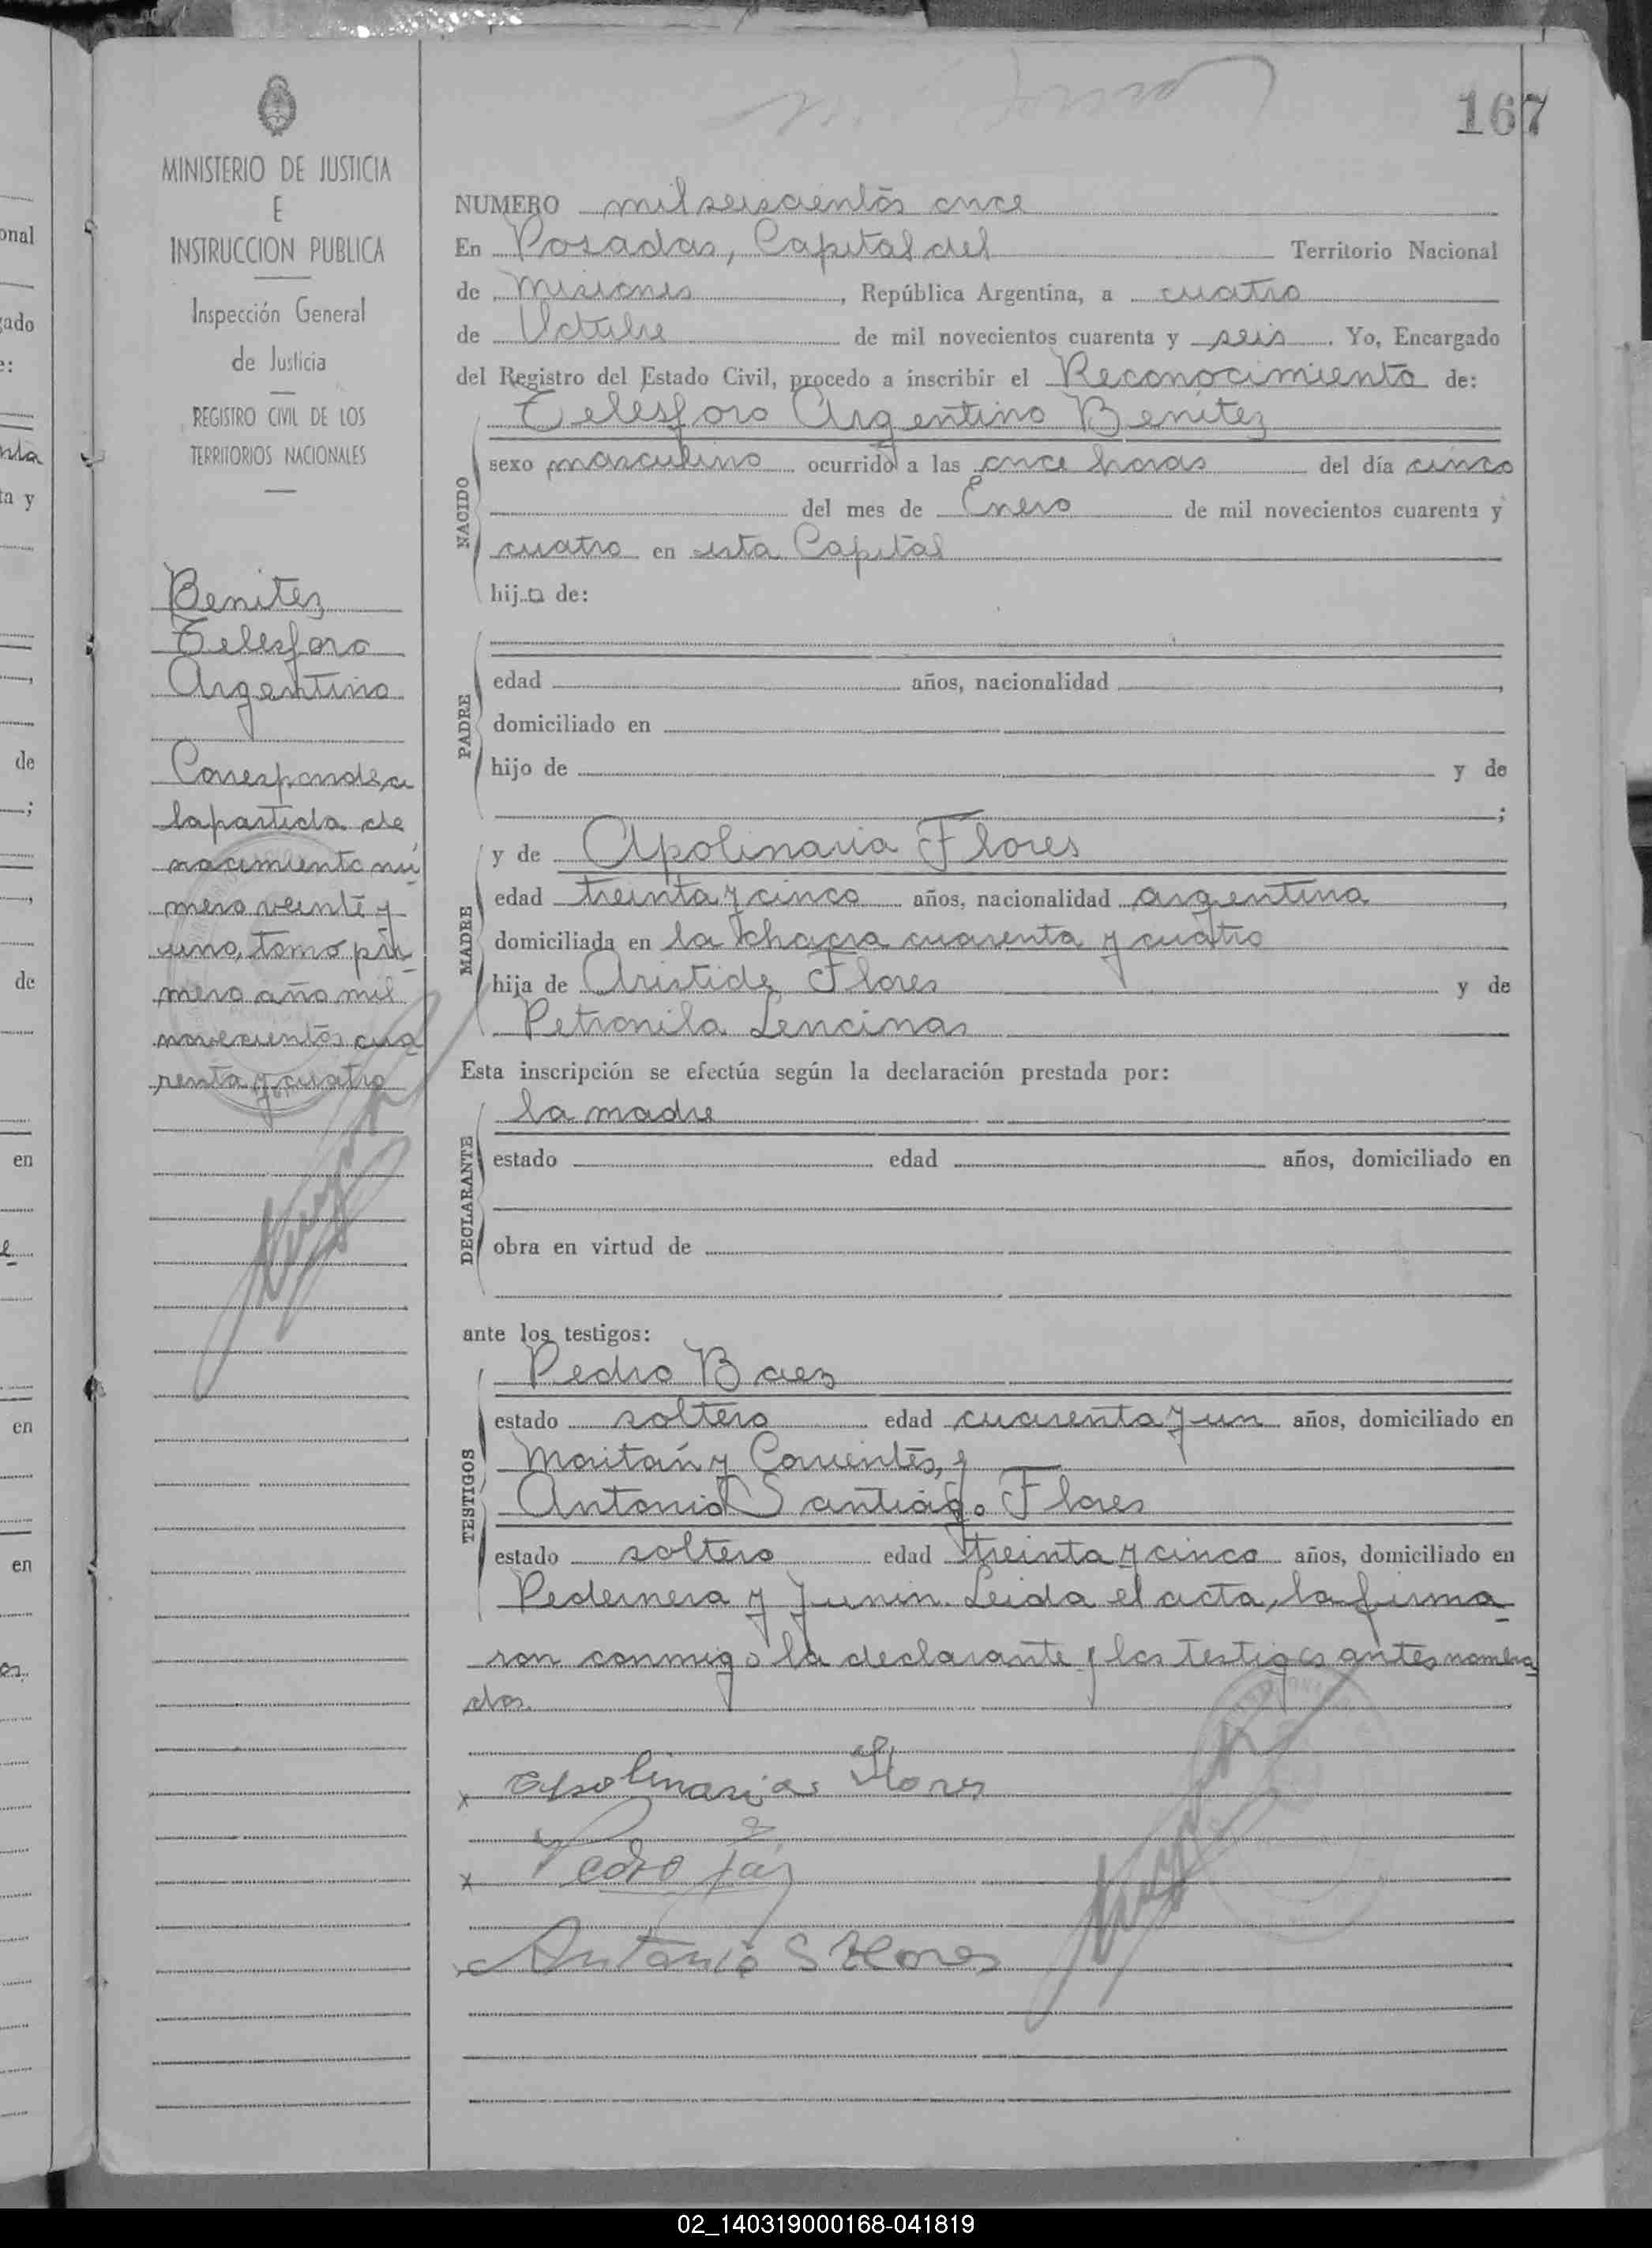 167
MINISTERIO DE JUSTICIA
E
INSTRUCCION PUBLICA
Inspección General
de Justicia
REGISTRO CIVIL DE LOS
TERRITORIOS NACIONALES
Benitez
Telesforo
Argentino
Corresponde, a
la partida de
nacimiento nú
mero veinte y
uno, tomo pri-
mero año mil
novecientos cua
renta y cuatro
NUMERO mil seiscientos once
En Posadas, Capital del Territorio Nacional
de Misiones, República Argentina, a cuatro
de Octubre de mil novecientos cuarenta y seis. Yo, Encargado
del Registro del Estado Civil, procedo a inscribir el Reconocimiento de:
Telesforo Argentino Benitez
NACIDO
sexo masculino ocurrido a las once horas del día cinco
del mes de Enero de mil novecientos cuarenta y
cuatro en esta Capital
hijo de:
PADRE
edad años, nacionalidad ,
domiciliado en
hijo de y de
;
y de Apolinaria Flores
MADRE
edad treinta y cinco años, nacionalidad argentina,
domiciliada en la chacra cuarenta y cuatro
hija de Aristide Flores y de
Petronila Lencinas
Esta inscripción se efectúa según la declaración prestada por:
la madre
DECLARANTE
estado edad años, domiciliado en
obra en virtud de
ante los testigos:
Pedro Baez
TESTIGOS
estado soltero edad cuarenta y un años, domiciliado en
Moritán y Corrientes, y
Antonio Santiago Flores
estado soltero edad treinta y cinco años, domiciliado en
Pedernera y Junin. Leida el acta, la firma-
ron conmigo la declarante y los testigos antes nombra
dos.
x Apolinaria Flores
x Pedro Báez
Antonio S Flores
onal
gado
e:
nta
ta y
de
;
de
en
en
en
02_140319000168-041819